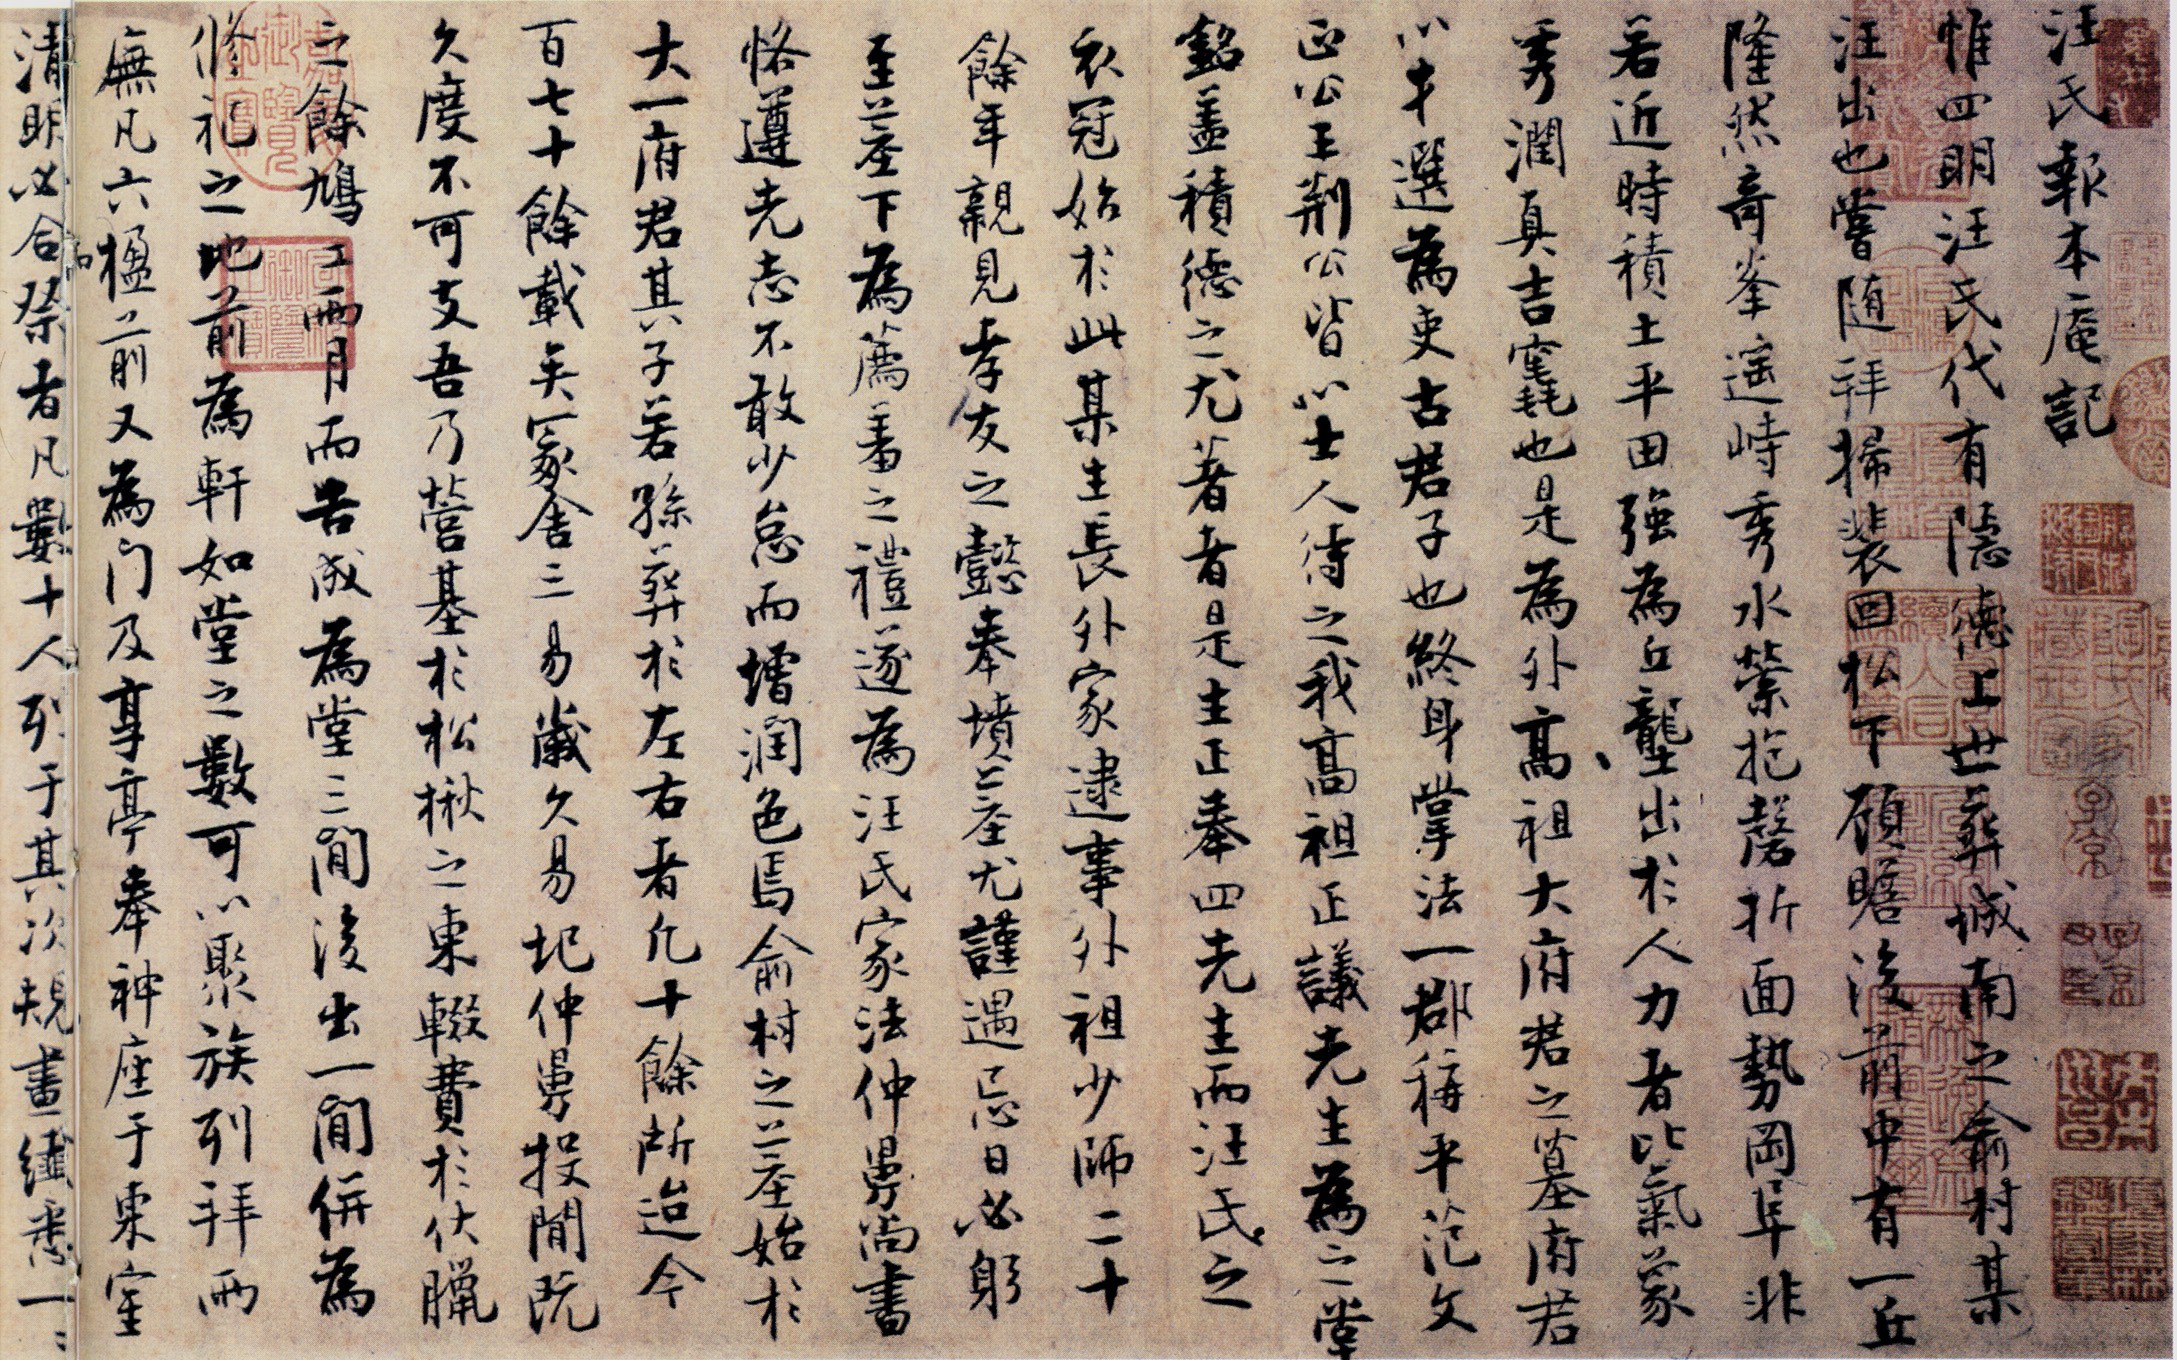 汪氏報本庵記
惟四明汪氏代有隱德上世葬城南之俞村某
汪出也嘗随拜掃裴回松下顧瞻後前中有一丘
隆然奇峯遥峙秀水縈抱磬折面勢岡阜非
若近時積土平田強為丘壟出於人力者比氣象
秀潤真吉窀也是為外高祖大府君之墓府君
以才選為吏古君子也終身掌法一郡稱平范文
正公王荆公皆以士人待之我高祖正議先生為之堂
銘盖積德之尤著者是生正奉四先生而汪氏之
衣冠始於此某生長外家逮事外祖少師二十
餘年親見孝友之懿奉墳墓尤謹遇忌日必躬
至墓下為薦羞之禮遂為汪氏家法仲舅尚書
恪遵先志不敢少怠而增潤色焉俞村之墓始於
大一府君其子若孫葬於左右者凡十餘所迨今
百七十餘載矣冢舍三易歲久易圮仲舅投閒既
久度不可支吾乃營基於松楸之東輟費於伏臘
之餘鳩工兩月而告成為堂三間後出一間併為
修祀之地前為軒如堂之數可以聚族列拜兩
廡凡六楹前又為门及享亭奉神座于東室
清明必合祭者凡數十人列于其次規畫纖悉一一